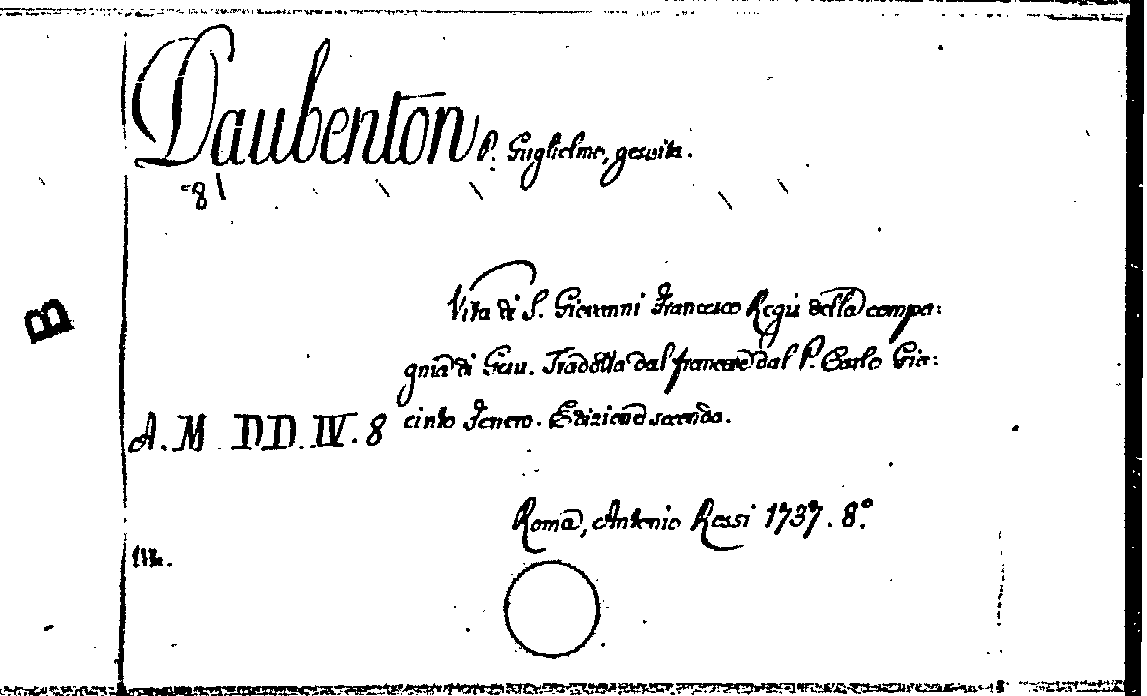 Daubenton P. Guglielmo, gesuita.
8
B
Vita di S. Giovanni Francesco Regis della compa:
gnia di Gesu. Tradotta dal francese dal P. Carlo Gia:
cinto Ferrero. Edizione seconda.
A. M DD. IV. 8
Roma, Antonio Rossi 1737. 8.º